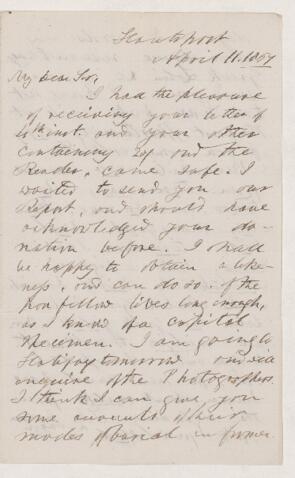 Hantsport
April 11. 1867
My Dear Sir,
I had the pleasure
of receiving your letter of
4th inst. and your other
containing and the
Reader, came safe. I
waited to send you our
Report, and should have
acknowledged your do-
nation before. I shall
be happy to obtain a like-
ness, and can do so if the
poor fellow lives long enough,
as I know of a capital
specimen. I am going to
Halifax tomorrow and will
enquire of the Photographers.
I think I can give you
some accounts of their
modes of burial in former